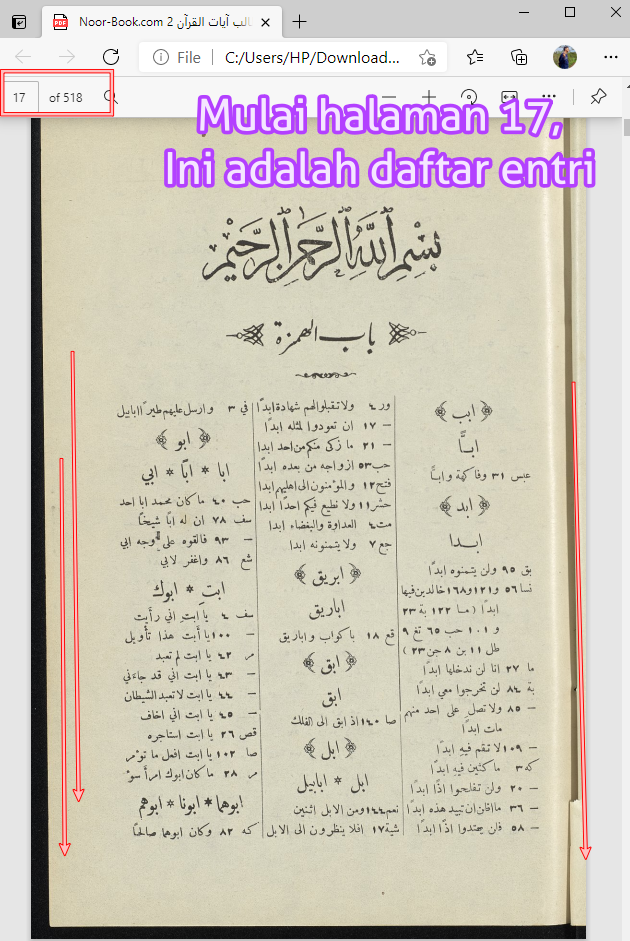 Noor-Book.com 2 الب آيات القرآن
File
C:/Users/HP/Download...
17
of 518
Mulai halaman 17,
Ini adalah daftar entri
بسم الله الرحمن الرحيم
باب الهمزة
﴿ ابب ﴾
ابـّا
عبس ٣١ وفاكهة وابـًّا
﴿ ابد ﴾
ابـدا
بق ٩٥ ولن يتمنوه ابدًا
نسا ٥٦ و١٢١ و١٦٨ خالدين فيها
ابدًا ( مـا ١٢٢ بة ٢٣
و ١٠١ حب ٦٥ تغ ٩
طل ١١ بن ٨ جن ٢٣ )
ما ٢٧ انا لن ندخلها ابدًا
بة ٨٤ لن تخرجوا معي ابدًا
— ٨٥ ولا تصل على احد منهم
مات ابدًا
— ١٠٩ لا تقم فيه ابدًا
كه ٣ ماكثين فيه ابدًا
— ٢٠ ولن تفلحوا اذًا ابدًا
— ٣٦ ما اظن ان تبيد هذه ابدًا
— ٥٨ فلن يهتدوا اذًا ابدًا
ور ٤ ولا تقبلوا لهم شهادة ابدًا
— ١٧ ان تعودوا لمثله ابدًا
— ٢١ ما زكى منكم من احد ابدا
حب ٥٣ ازواجه من بعده ابدًا
فتح ١٢ والمؤمنون الى اهليهم ابدا
حشر ١١ ولا نطيع فيكم احدًا ابدا
مت ٤ العداوة والبغضاء ابدا
جع ٧ ولا يتمنونه ابدا
﴿ ابريق ﴾
اباريق
قع ١٨ باكواب واباريق
﴿ ابق ﴾
ابق
صا ١٤٠ اذ ابق الى الفلك
﴿ ابل ﴾
ابل * ابابيل
نعم ١٤٤ ومن الابل اثنين
شية ١٧ افلا ينظرون الى الابل
في ٣ وارسل عليهم طيرًا ابابيل
﴿ ابو ﴾
ابا * ابًا * ابي
حب ٤٠ ما كان محمد ابا احد
سف ٧٨ ان له ابًا شيخًا
— ٩٣ فالقوه على وجه ابي
شع ٨٦ واغفر لابي
ابتِ * ابوك
سف ٤ يا ابت اني رأيت
— ١٠٠ يا أبت هذا تأويل
مر ٤٢ يا ابت لم تعبد
— ٤٣ يا ابت اني قد جاءني
— ٤٤ يا ابت لا تعبد الشيطان
— ٤٥ يا ابت اني اخاف
قص ٢٦ يا ابت استاجره
صا ١٠٢ يا ابت افعل ما تؤمر
مر ٢٨ ما كان ابوك امرأ سوْ
ابوهما * ابونا * ابوهم
كه ٨٢ وكان ابوهما صالحًا